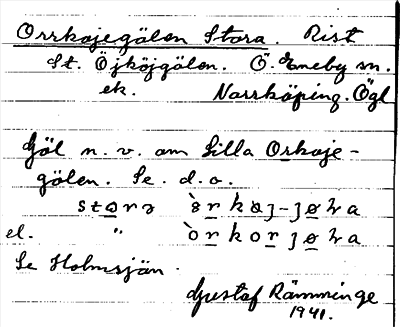 Orrkojegölen Stora. Rist
St. Öjköjgölen. Ö. Eneby sn.
ek. Norrköping. Ögl
Göl n. v. om Lilla Orkoje-
gölen. Se. d. o.
el. "
Se Holmsjön.
Gustaf Rämminge
1941.